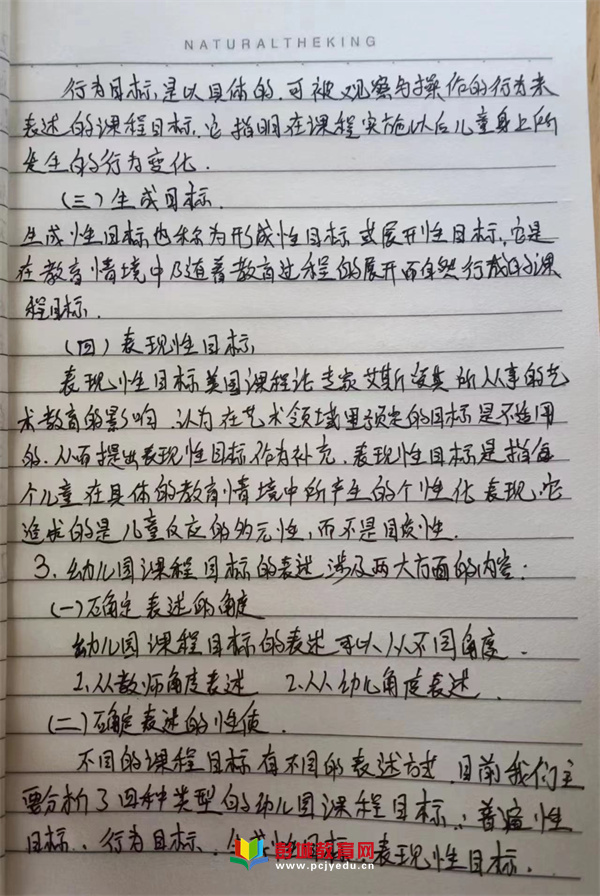 NATURALTHEKING
行为目标,是以具体的、可被观察与操作的行为来
表述的课程目标,它指明在课程实施以后儿童身上所
发生的行为变化.
(三)生成目标.
生成性目标也称为形成性目标或展开性目标,它是
在教育情境中随着教育过程的展开而自然行成的课
程目标.
(四)表现性目标
表现性目标美国课程论专家艾斯 所从事的艺
术教育的影响,认为在艺术领域里预定的目标是不适用
的.从而提出表现性目标作为补充.表现性目标是指每
个儿童在具体的教育情境中所产生的个性化表现,它
追成的是儿童反应的多元性,而不是同质性.
3.幼儿园课程目标的表述,涉及两大方面的内容:
(一)确定表述的角度
幼儿园课程目标的表述可以从不同角度.
1.从教师角度表述 2.从幼儿角度表述.
(二)确定表述的性质.
不同的课程目标有不同的表述方式,目前我们主
要分析了四种类型的幼儿园课程目标:普遍性
目标、行为目标、生成性目标、表现性目标.
彭城教育网
www.pcjyedu.cn